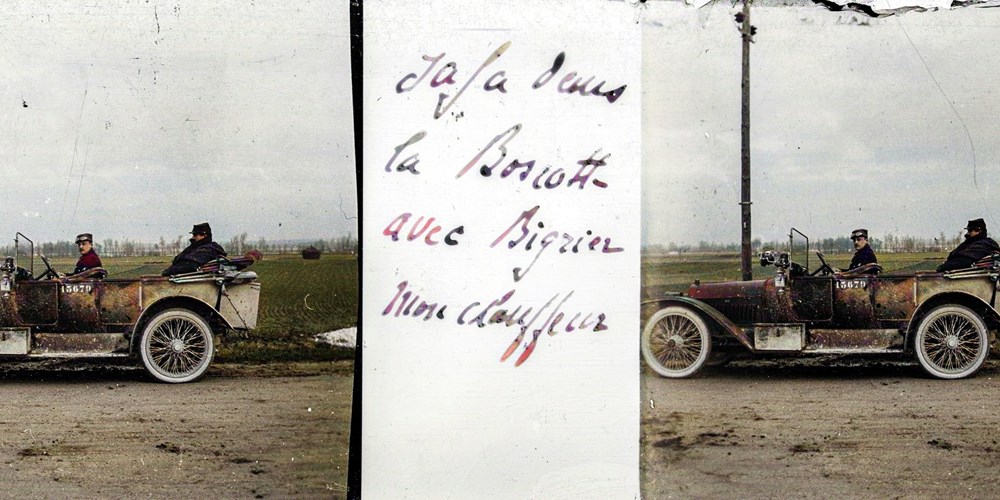 dans
la Boscott
avec Bigrier
Mon chauffeur
15679
15679